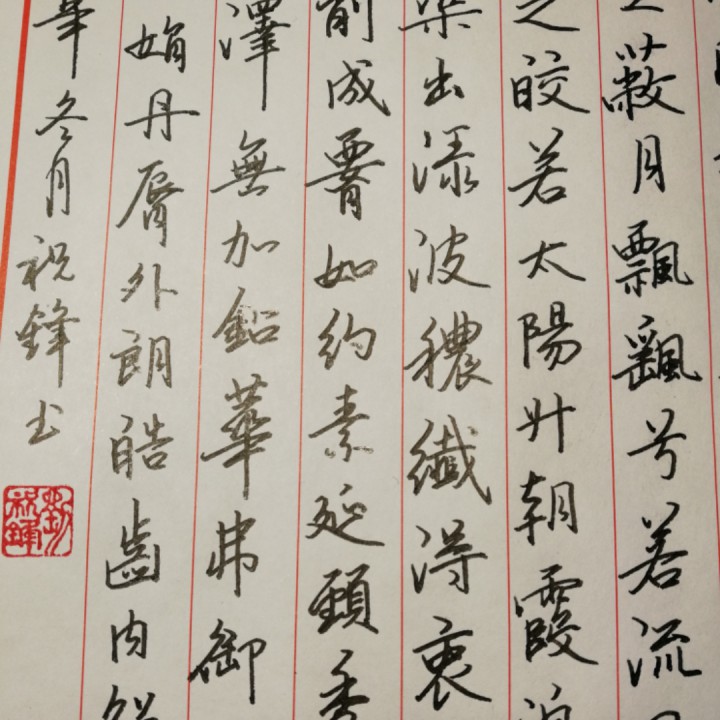 之蔽月飄飖兮若流
之皎若太陽升朝霞迫
渠出淥波穠纖得衷
削成腰如約素延頸秀
澤無加鉛華弗御
娟丹脣外朗皓齒內鮮
冬月祝鋒书